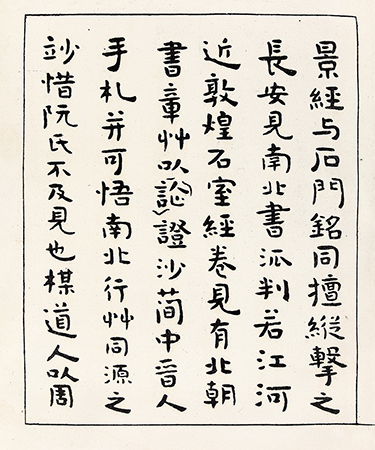 景經与石門銘同擅縱擊之
長安見南北書派判若江河
近敦煌石室經卷見有北朝
書章艸以證沙蕳中晉人
手札并可悟南北行艸同源之
竗惜阮氏不及見也楳道人以周